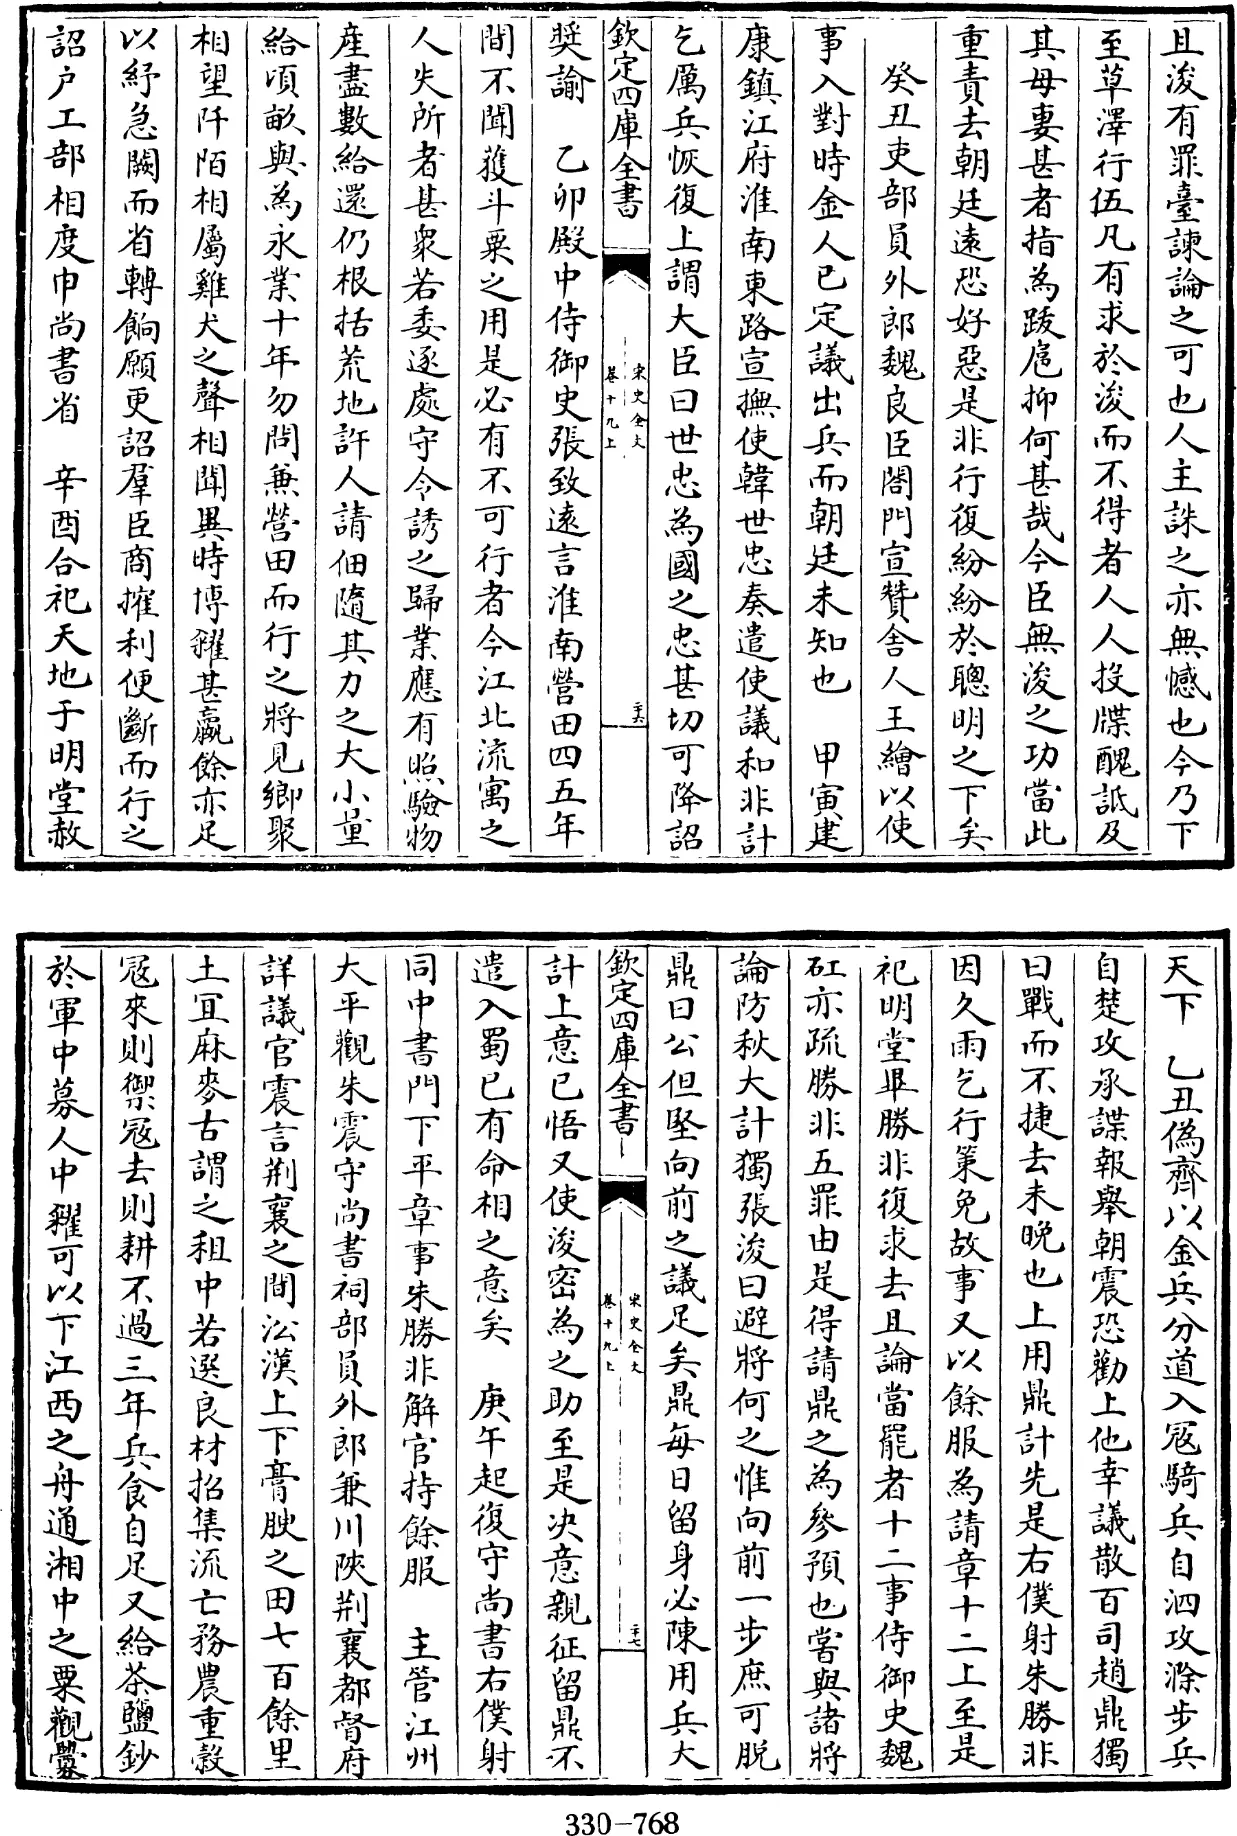 且浚有罪臺諫論之可也人主誅之亦無憾也今乃下
至草澤行伍凡有求於浚而不得者人人投牒醜詆及
其母妻甚者指為跋扈抑何甚哉今臣無浚之功當此
重責去朝廷遠恐好惡是非行復紛紛於聰明之下矣
癸丑吏部員外郎魏良臣閤門宣贊舍人王繪以使
事入對時金人已定議出兵而朝廷未知也 甲寅建
康鎮江府淮南東路宣撫使韓世忠奏遣使議和非計
乞厲兵恢復上謂大臣曰世忠為國之忠甚切可降詔
欽定四庫全書
宋史全文
卷十九上
二十六
奬諭 乙卯殿中侍御史張致遠言淮南營田四五年
間不聞獲斗粟之用是必有不可行者今江北流寓之
人失所者甚衆若委逐處守令誘之歸業應有照驗物
產盡數給還仍根括荒地許人請佃隨其力之大小量
給頃畝與為永業十年勿問兼營田而行之將見鄉聚
相望阡陌相屬雞犬之聲相聞異時博糴甚贏餘亦足
以紓急闕而省轉餉願更詔羣臣商搉利便斷而行之
詔户工部相度申尚書省 辛酉合祀天地于明堂赦
天下 乙丑偽齊以金兵分道入寇騎兵自泗攻滁步兵
自楚攻承諜報舉朝震恐勸上他幸議散百司趙鼎獨
曰戰而不捷去未晚也上用鼎計先是右僕射朱勝非
因久雨乞行策免故事又以餘服為請章十二上至是
祀明堂畢勝非復求去且論當罷者十二事侍御史魏
矼亦疏勝非五罪由是得請鼎之為參預也嘗與諸將
論防秋大計獨張浚曰避將何之惟向前一步庶可脱
鼎曰公但堅向前之議足矣鼎每日留身必陳用兵大
欽定四庫全書
宋史全文
卷十九上
二十七
計上意已悟又使浚密為之助至是决意親征留鼎不
遣入蜀已有命相之意矣 庚午起復守尚書右僕射
同中書門下平章事朱勝非解官持餘服 主管江州
太平觀朱震守尚書祠部員外郎兼川陜荆襄都督府
詳議官震言荆襄之間沿漢上下膏腴之田七百餘里
土宜麻麥古謂之租中若選良材招集流亡務農重榖
寇來則禦寇去則耕不過三年兵食自足又給茶鹽鈔
於軍中募人中糴可以下江西之舟通湘中之粟觀釁
330-768